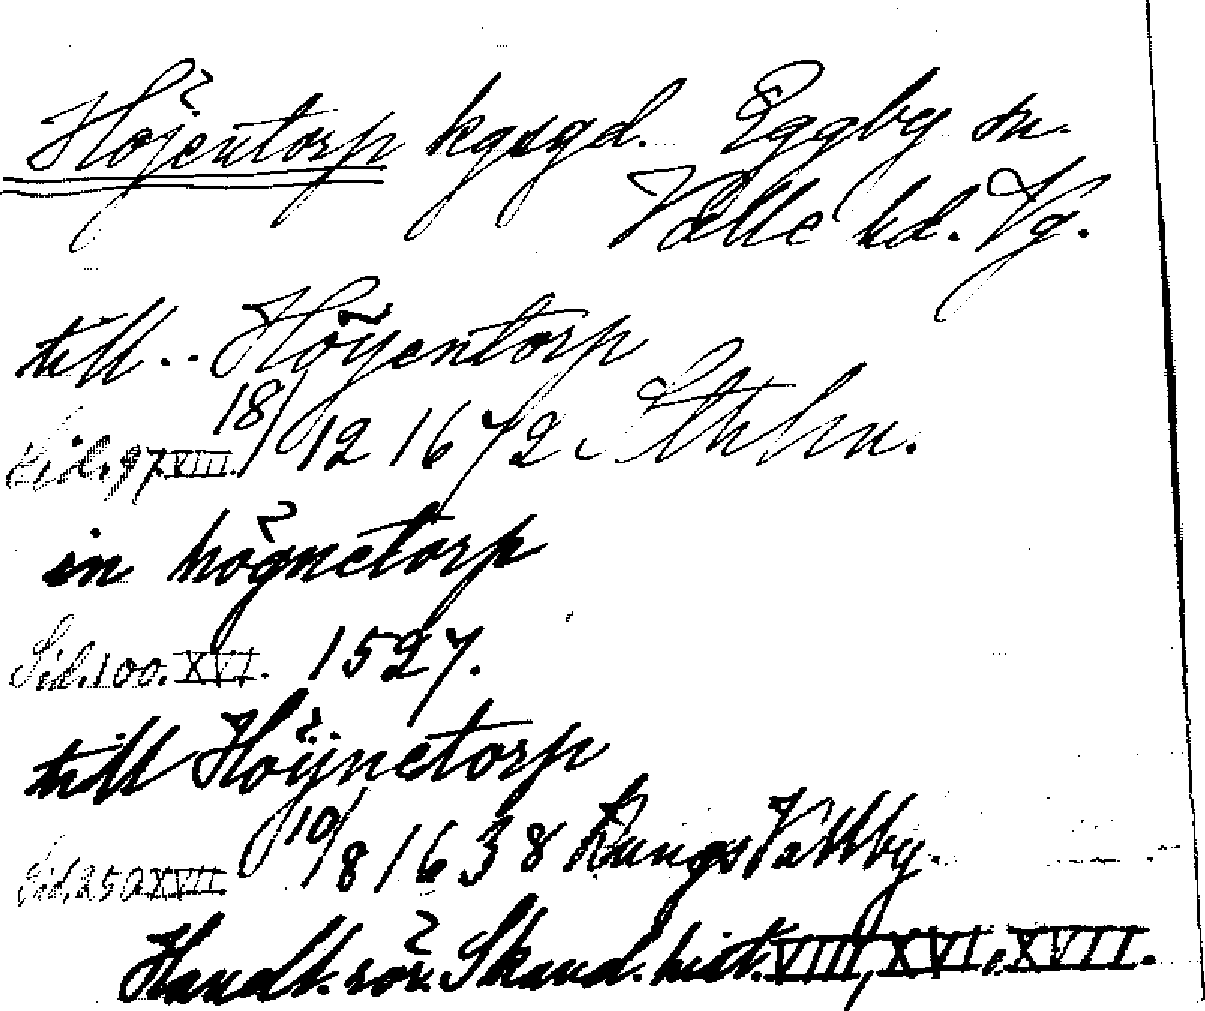 Höjentorp kgsgd. Eggby sn.
Valle hd. Vg.
till .. Höyentorp
18/12 1672 Sthlm.
Sid. 97 VIII.
in högnetorp
Sid. 100. XVI. 1527.
till Höijnetorp
10/8 1638 Kungs Vallby.
Sid. 250 XVII
Handl. rör. Skand. hist. VIII, XVI, XVII.